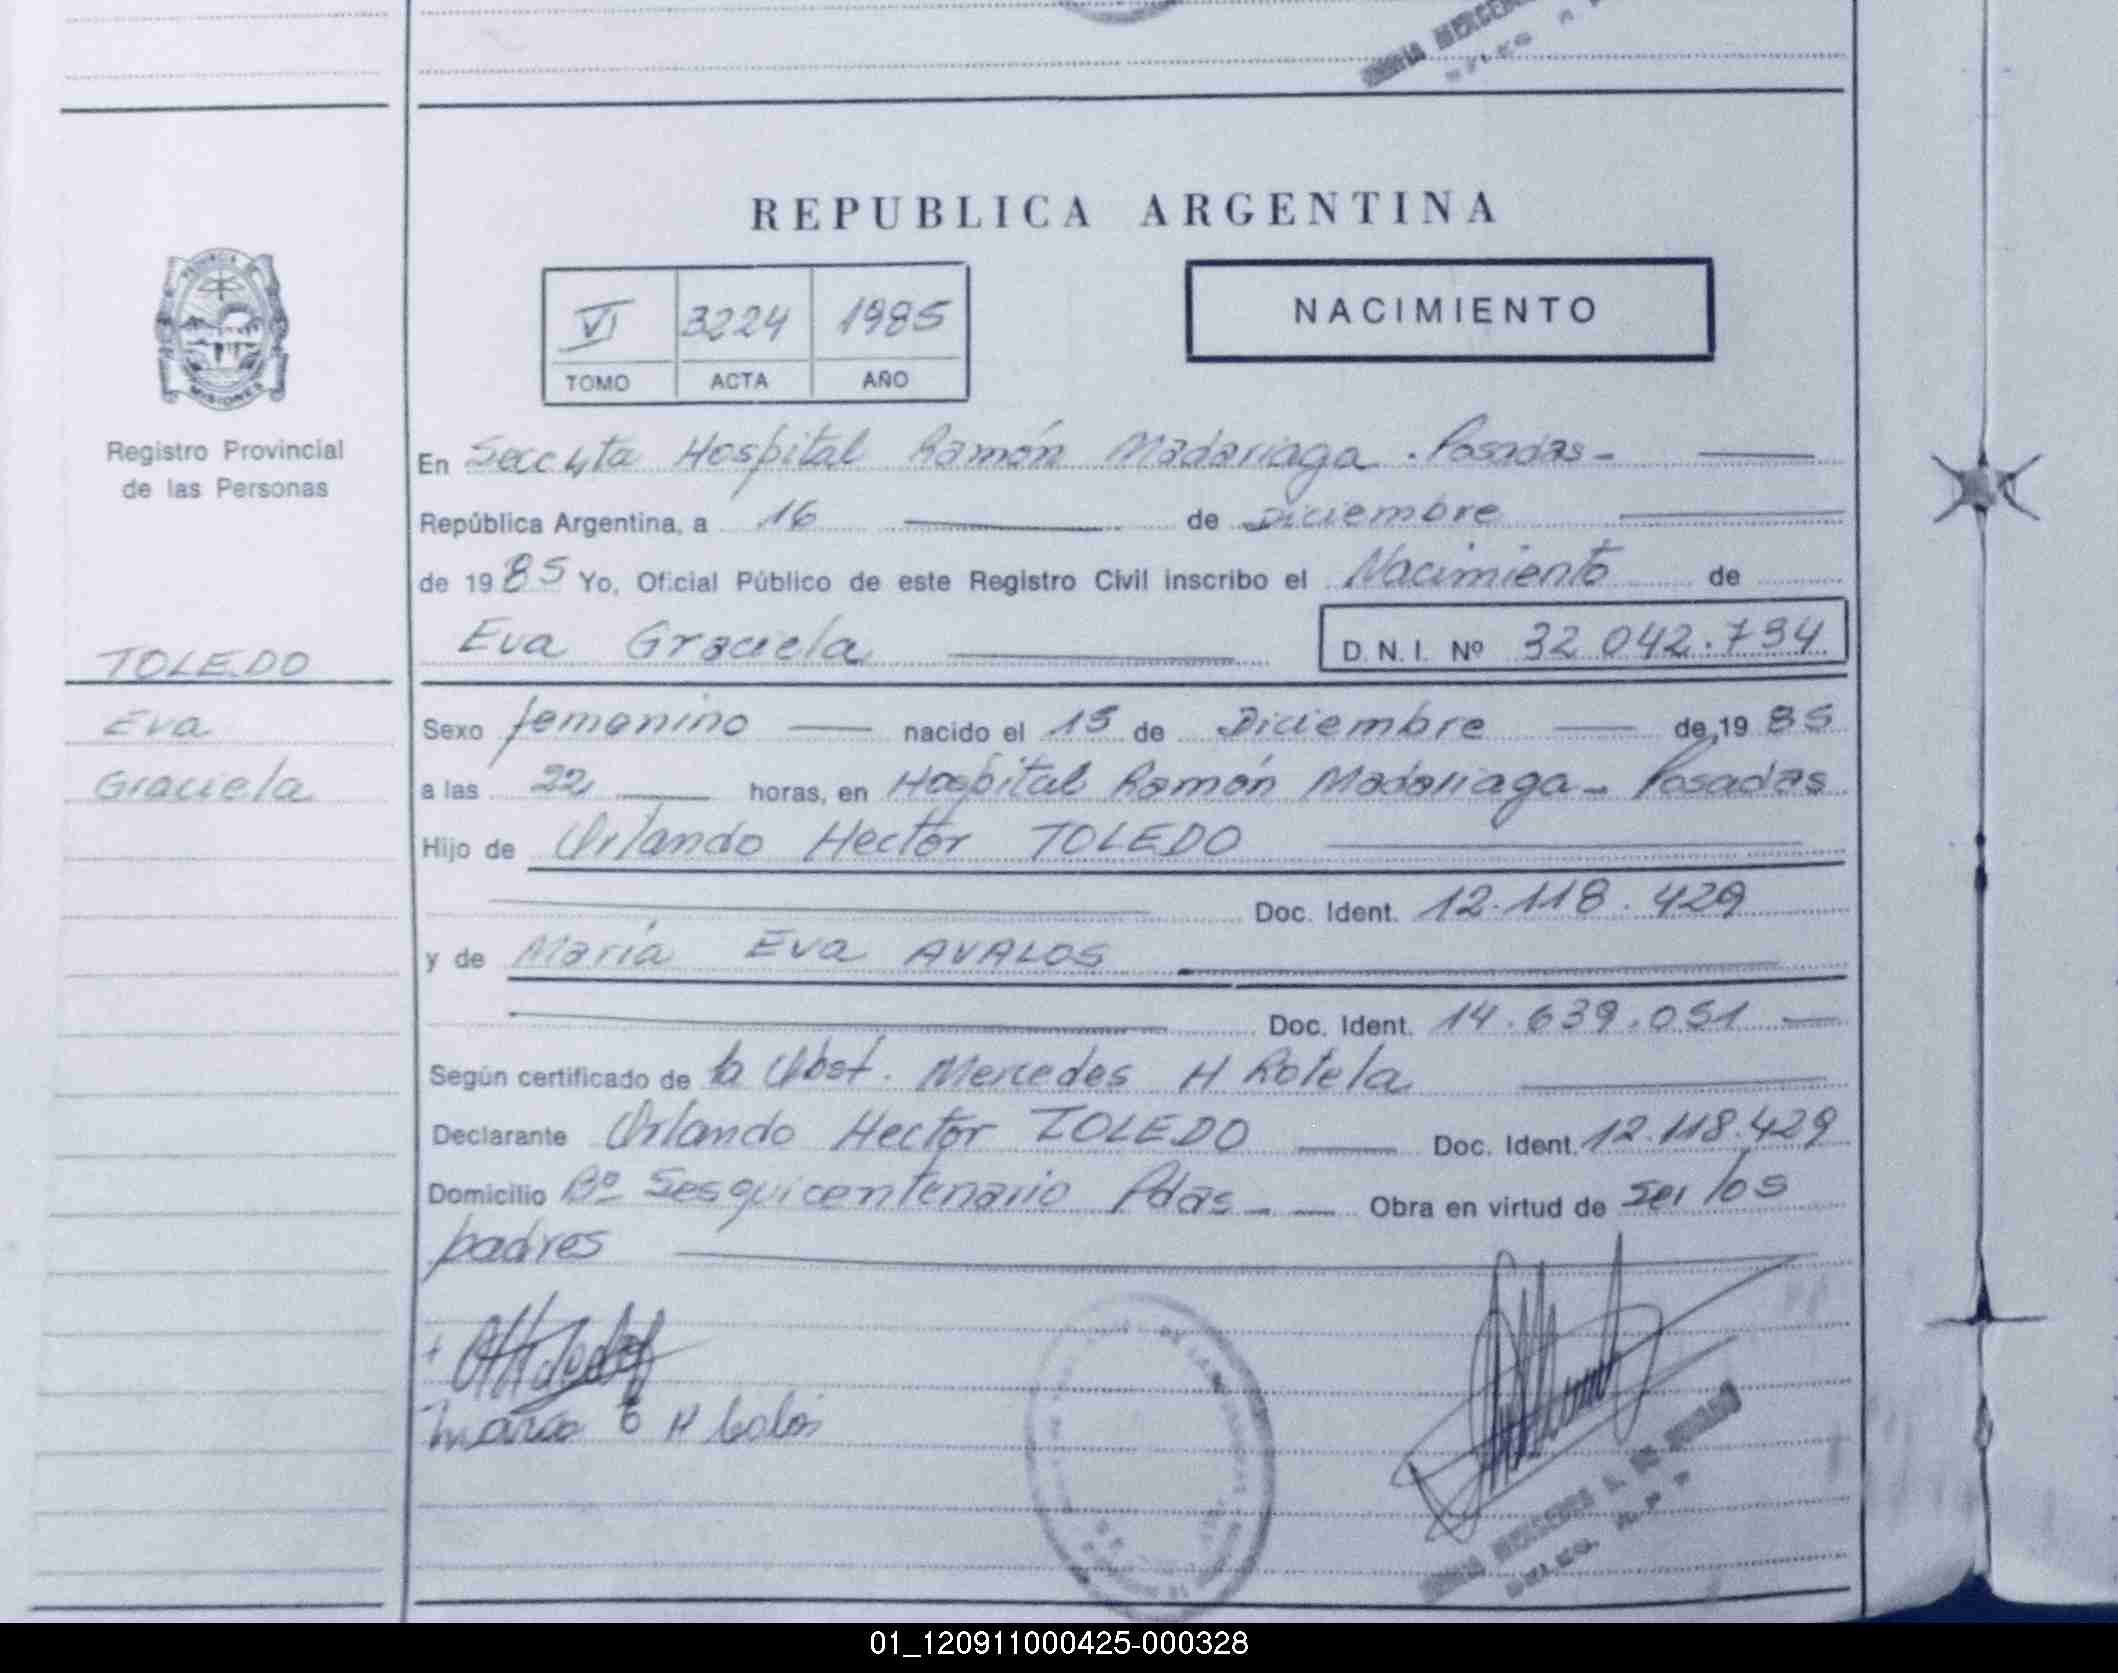 REPUBLICA ARGENTINA
PROVINCIA DE
MISIONES
Registro Provincial
de las Personas
VI 3224 1985
TOMO ACTA AÑO
NACIMIENTO
En Secc 4ta Hospital Ramón Madariaga . Posadas -
República Argentina, a 16 de Diciembre
de 1985 Yo, Oficial Público de este Registro Civil inscribo el Nacimiento de
Eva Graciela
D. N. I. Nº 32 042.734
TOLEDO
Eva
Graciela
Sexo femenino nacido el 15 de Diciembre de 1985
a las 22 horas, en Hospital Ramón Madariaga - Posadas
Hijo de Orlando Hector TOLEDO
Doc. Ident. 12.118.429
y de María Eva AVALOS
Doc. Ident. 14.639.051
Según certificado de la Obst. Mercedes H Rotela
Declarante Orlando Hector TOLEDO Doc. Ident. 12.118.429
Domicilio Bº Sesquicentenario Pdas - Obra en virtud de ser los
padres
01_120911000425-000328